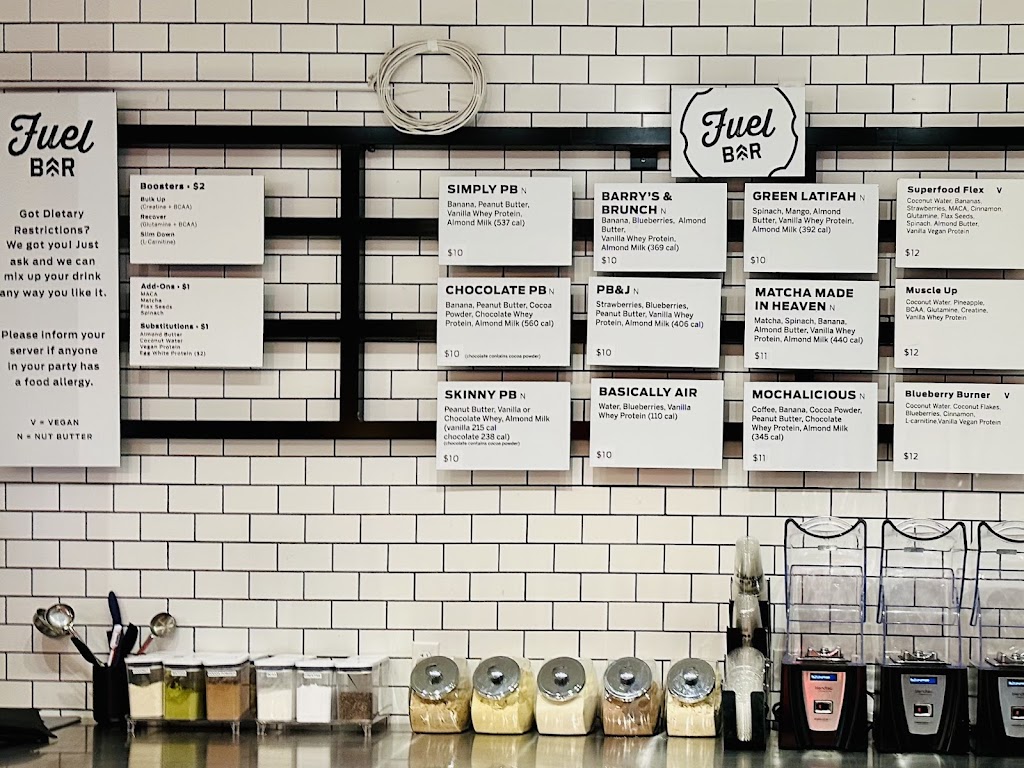 Fuel
BAR
Got Dietary
Restrictions?
We got you! Just
ask and we can
mix up your drink
any way you like it.
Please inform your
server if anyone
in your party has
a food allergy.
V = VEGAN
N = NUT BUTTER
Boosters • $2
Bulk Up
(Creatine + BCAA)
Recover
(Glutamine + BCAA)
Slim Down
(L-Carnitine)
Add-Ons • $1
MACA
Matcha
Flax Seeds
Spinach
Substitutions • $1
Almond Butter
Coconut Water
Vegan Protein
Egg White Protein ($2)
Fuel
BAR
SIMPLY PB N
Banana, Peanut Butter,
Vanilla Whey Protein,
Almond Milk (537 cal)
$10
CHOCOLATE PB N
Banana, Peanut Butter, Cocoa
Powder, Chocolate Whey
Protein, Almond Milk (560 cal)
$10 (chocolate contains cocoa powder)
SKINNY PB N
Peanut Butter, Vanilla or
Chocolate Whey, Almond Milk
(vanilla 215 cal
chocolate 238 cal)
(chocolate contains cocoa powder)
$10
BARRY'S &
BRUNCH N
Banana, Blueberries, Almond
Butter,
Vanilla Whey Protein,
Almond Milk (369 cal)
$10
PB&J N
Strawberries, Blueberries,
Peanut Butter, Vanilla Whey
Protein, Almond Milk (406 cal)
$10
BASICALLY AIR
Water, Blueberries, Vanilla
Whey Protein (110 cal)
$10
GREEN LATIFAH N
Spinach, Mango, Almond
Butter, Vanilla Whey Protein,
Almond Milk (392 cal)
$10
MATCHA MADE
IN HEAVEN N
Matcha, Spinach, Banana,
Almond Butter, Vanilla Whey
Protein, Almond Milk (440 cal)
$11
MOCHALICIOUS N
Coffee, Banana, Cocoa Powder,
Peanut Butter, Chocolate Whey
Protein, Almond Milk
(345 cal)
$11
Superfood Flex V
Coconut Water, Bananas,
Strawberries, MACA, Cinnamon,
Glutamine, Flax Seeds,
Spinach, Almond Butter,
Vanilla Vegan Protein
$12
Muscle Up
Coconut Water, Pineapple,
BCAA, Glutamine, Creatine,
Vanilla Whey Protein
$12
Blueberry Burner V
Coconut Water, Coconut Flakes,
Blueberries, Cinnamon,
L-carnitine,Vanilla Vegan Protein
$12